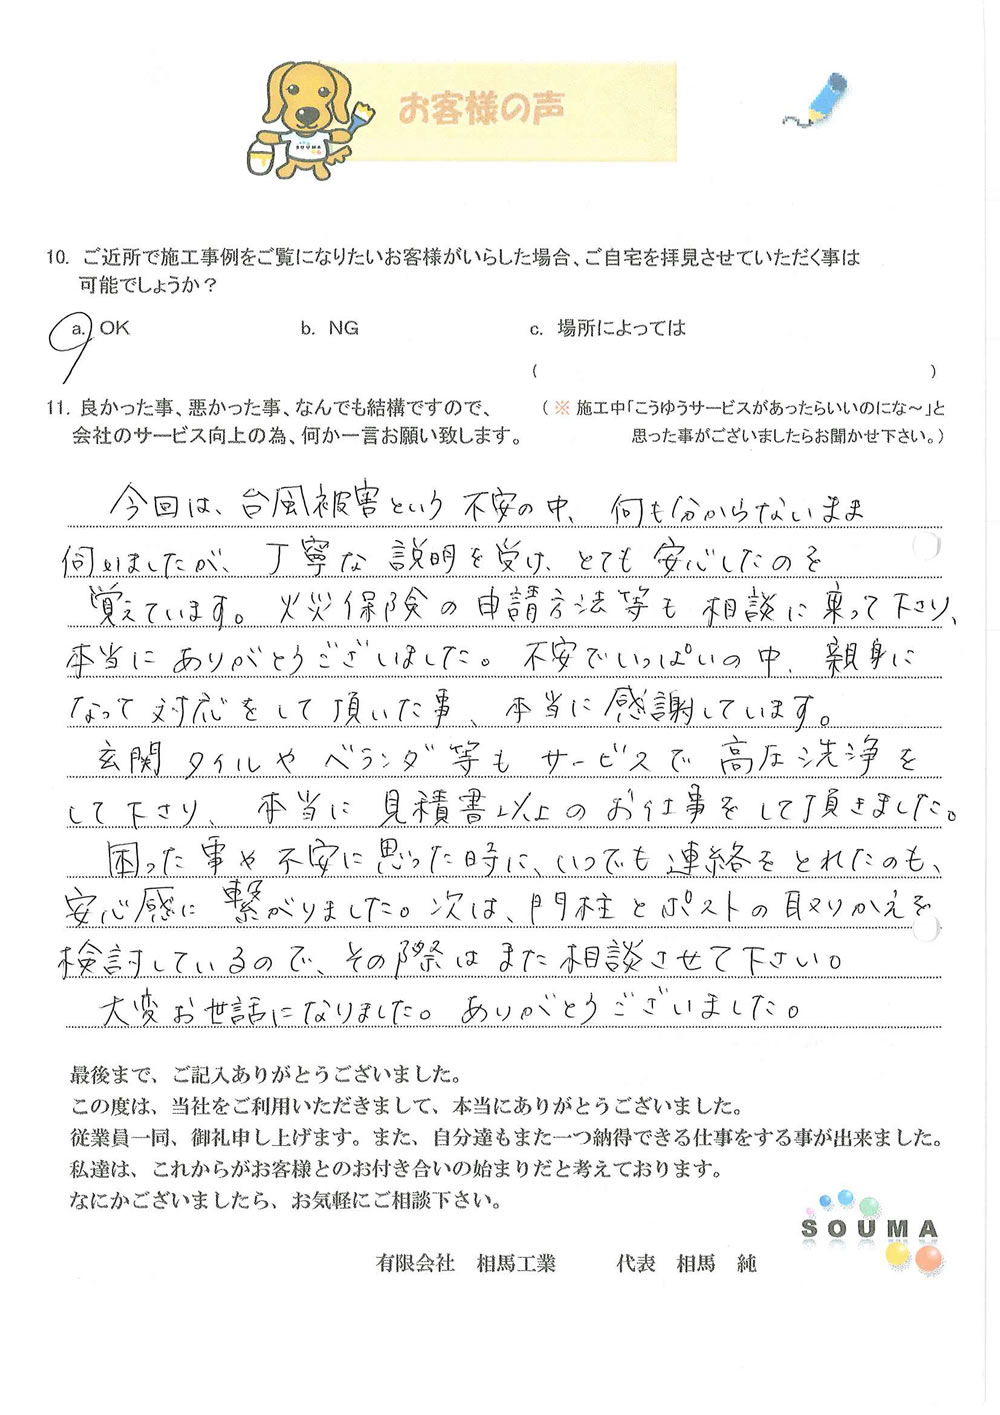 SOUMA
お客様の声
10. ご近所で施工事例をご覧になりたいお客様がいらした場合、ご自宅を拝見させていただく事は
可能でしょうか？
a. OK b. NG c. 場所によっては
( )
11. 良かった事、悪かった事、なんでも結構ですので、 (※ 施工中「こうゆうサービスがあったらいいのにな～」と
会社のサービス向上の為、何か一言お願い致します。 思った事がございましたらお聞かせ下さい。)
今回は、台風被害という不安の中、何も分からないまま
伺いましたが、丁寧な説明を受け、とても安心したのを
覚えています。火災保険の申請方法等も相談に乗って下さり、
本当にありがとうございました。不安でいっぱいの中、親身に
なって対応をして頂いた事、本当に感謝しています。
玄関タイルやベランダ等もサービスで高圧洗浄を
して下さり、本当に見積書以上のお仕事をして頂きました。
困った事や不安に思った時に、いつでも連絡をとれたのも、
安心感に繋がりました。次は、門柱とポストの取りかえを
検討しているので、その際はまた相談させて下さい。
大変お世話になりました。ありがとうございました。
最後まで、ご記入ありがとうございました。
この度は、当社をご利用いただきまして、本当にありがとうございました。
従業員一同、御礼申し上げます。また、自分達もまた一つ納得できる仕事をする事が出来ました。
私達は、これからがお客様とのお付き合いの始まりだと考えております。
なにかございましたら、お気軽にご相談下さい。
SOUMA
有限会社 相馬工業 代表 相馬 純